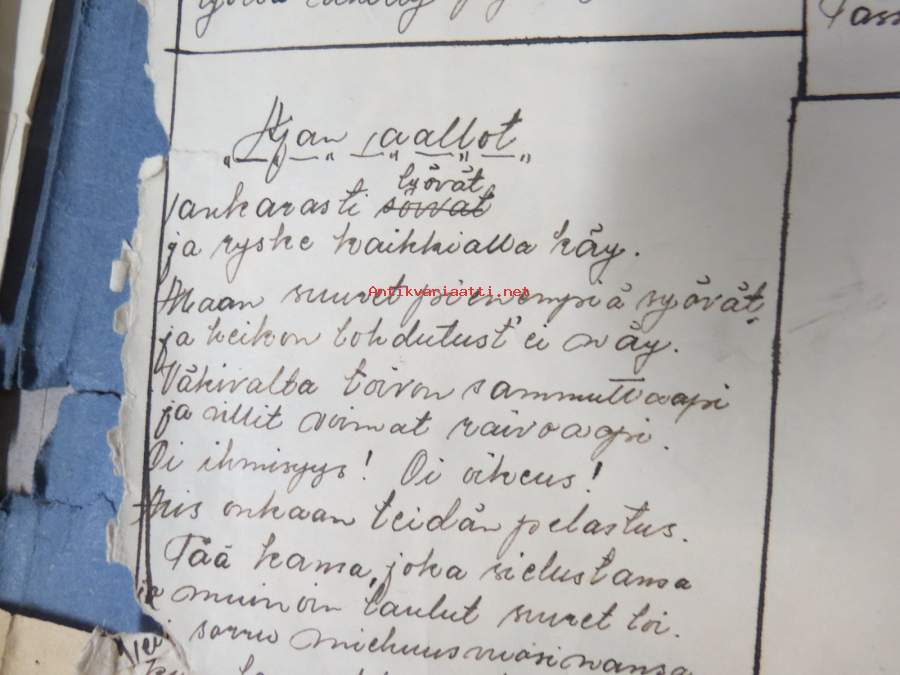 Tass
Ajan aallot
lyövät
ankarasti soivat
ja ryske kaikkialla käy.
Maan suuret pienempiä syövät,
Antikvariaatti.net
ja heikon lohdutust' ei näy.
Väkivalta toivon sammuttaapi
ja villit voimat raivoaapi.
Oi ihmisyys! Oi oikeus!
Mis onkaan teidän pelastus.
Tää kansa, joka sielustansa
muinoin laulut suuret loi.
sorru miehuusvuosinansa